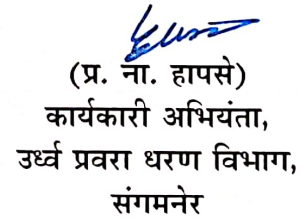 (प्र. ना. हापसे)
कार्यकारी अभियंता,
उर्ध्व प्रवरा धरण विभाग,
संगमनेर